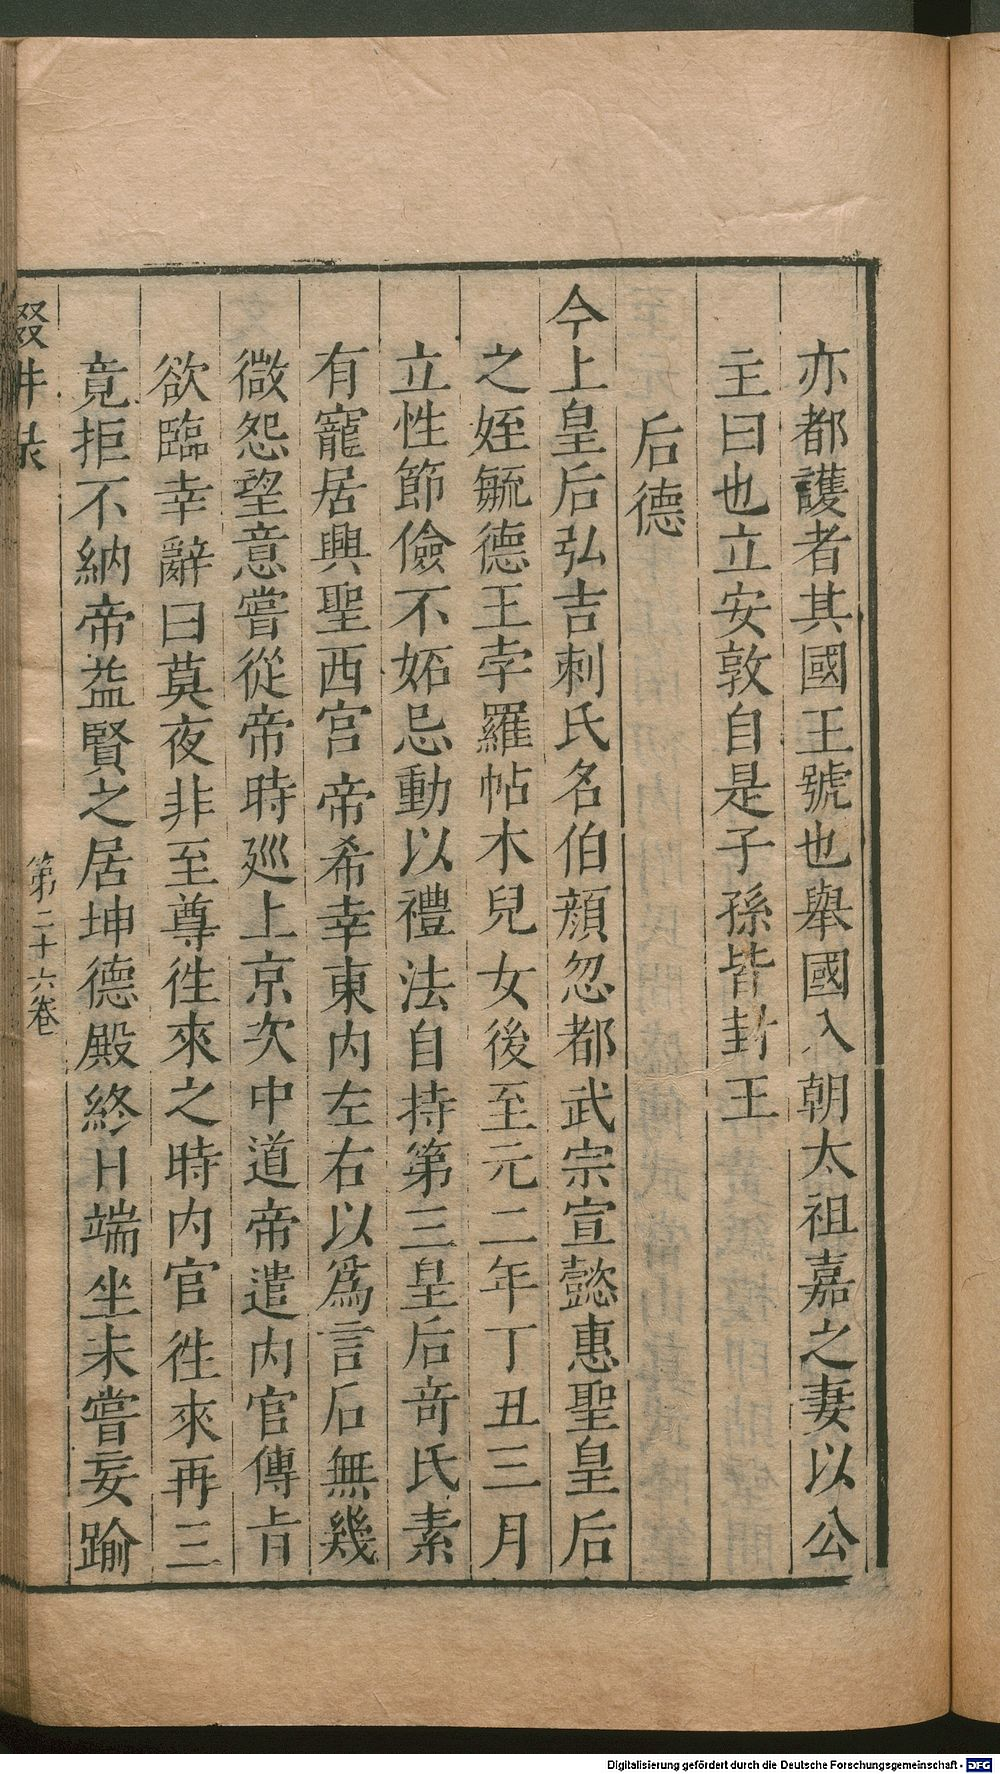 亦都護者其國王號也舉國入朝太祖嘉之妻以公
主曰也立安敦自是子孫皆封王
后德
今上皇后弘吉剌氏名伯顏忽都武宗宣懿惠聖皇后
之姪毓德王孛羅帖木兒女後至元二年丁丑三月
立性節儉不妬忌動以禮法自持第三皇后竒氏素
有寵居興聖西宫帝希幸東内左右以爲言后無幾
微怨望意嘗從帝時廵上京次中道帝遣内官傳旨
欲臨幸辭曰莫夜非至尊徃來之時内官徃來再三
竟拒不納帝益賢之居坤德殿終日端坐未嘗妄踰
第二十六卷
Digitalisierung gefördert durch die Deutsche Forschungsgemeinschaft - DFG